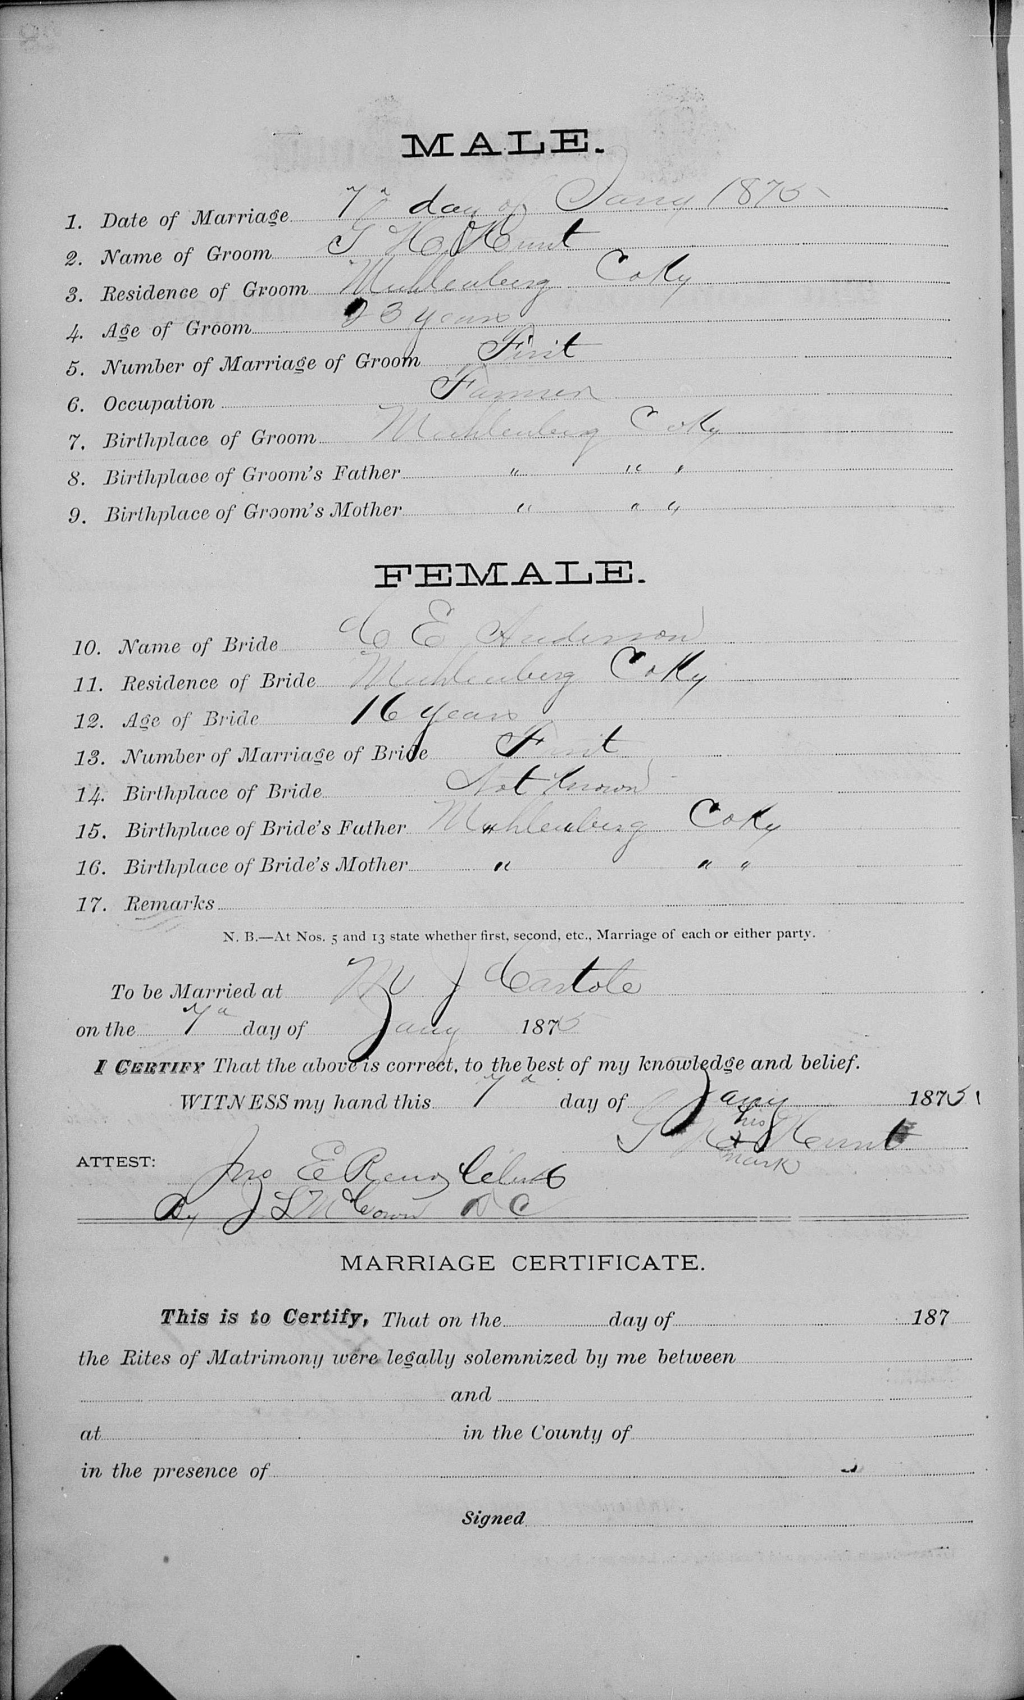 MALE.
1. Date of Marriage 7th day of Jany 1875
2. Name of Groom G H Hunt
3. Residence of Groom Muhlenberg Co Ky
4. Age of Groom 23 years
5. Number of Marriage of Groom First
6. Occupation Farmer
7. Birthplace of Groom Muhlenberg Co Ky
8. Birthplace of Groom's Father " " "
9. Birthplace of Groom's Mother " " "
FEMALE.
10. Name of Bride C E Anderson
11. Residence of Bride Muhlenberg Co Ky
12. Age of Bride 16 years
13. Number of Marriage of Bride First
14. Birthplace of Bride Not Known
15. Birthplace of Bride's Father Muhlenberg Co Ky
16. Birthplace of Bride's Mother " " "
17. Remarks
N. B.—At Nos. 5 and 13 state whether first, second, etc., Marriage of each or either party.
To be Married at J
on the 7 day of Jany 1875
I CERTIFY That the above is correct, to the best of my knowledge and belief.
WITNESS my hand this 7 day of Jany 1875
his
G H x Hunt
mark
ATTEST: Jno E Reno Clerk
By J L McCown D C
MARRIAGE CERTIFICATE.
This is to Certify, That on the day of 187
the Rites of Matrimony were legally solemnized by me between
and
at in the County of
in the presence of
Signed